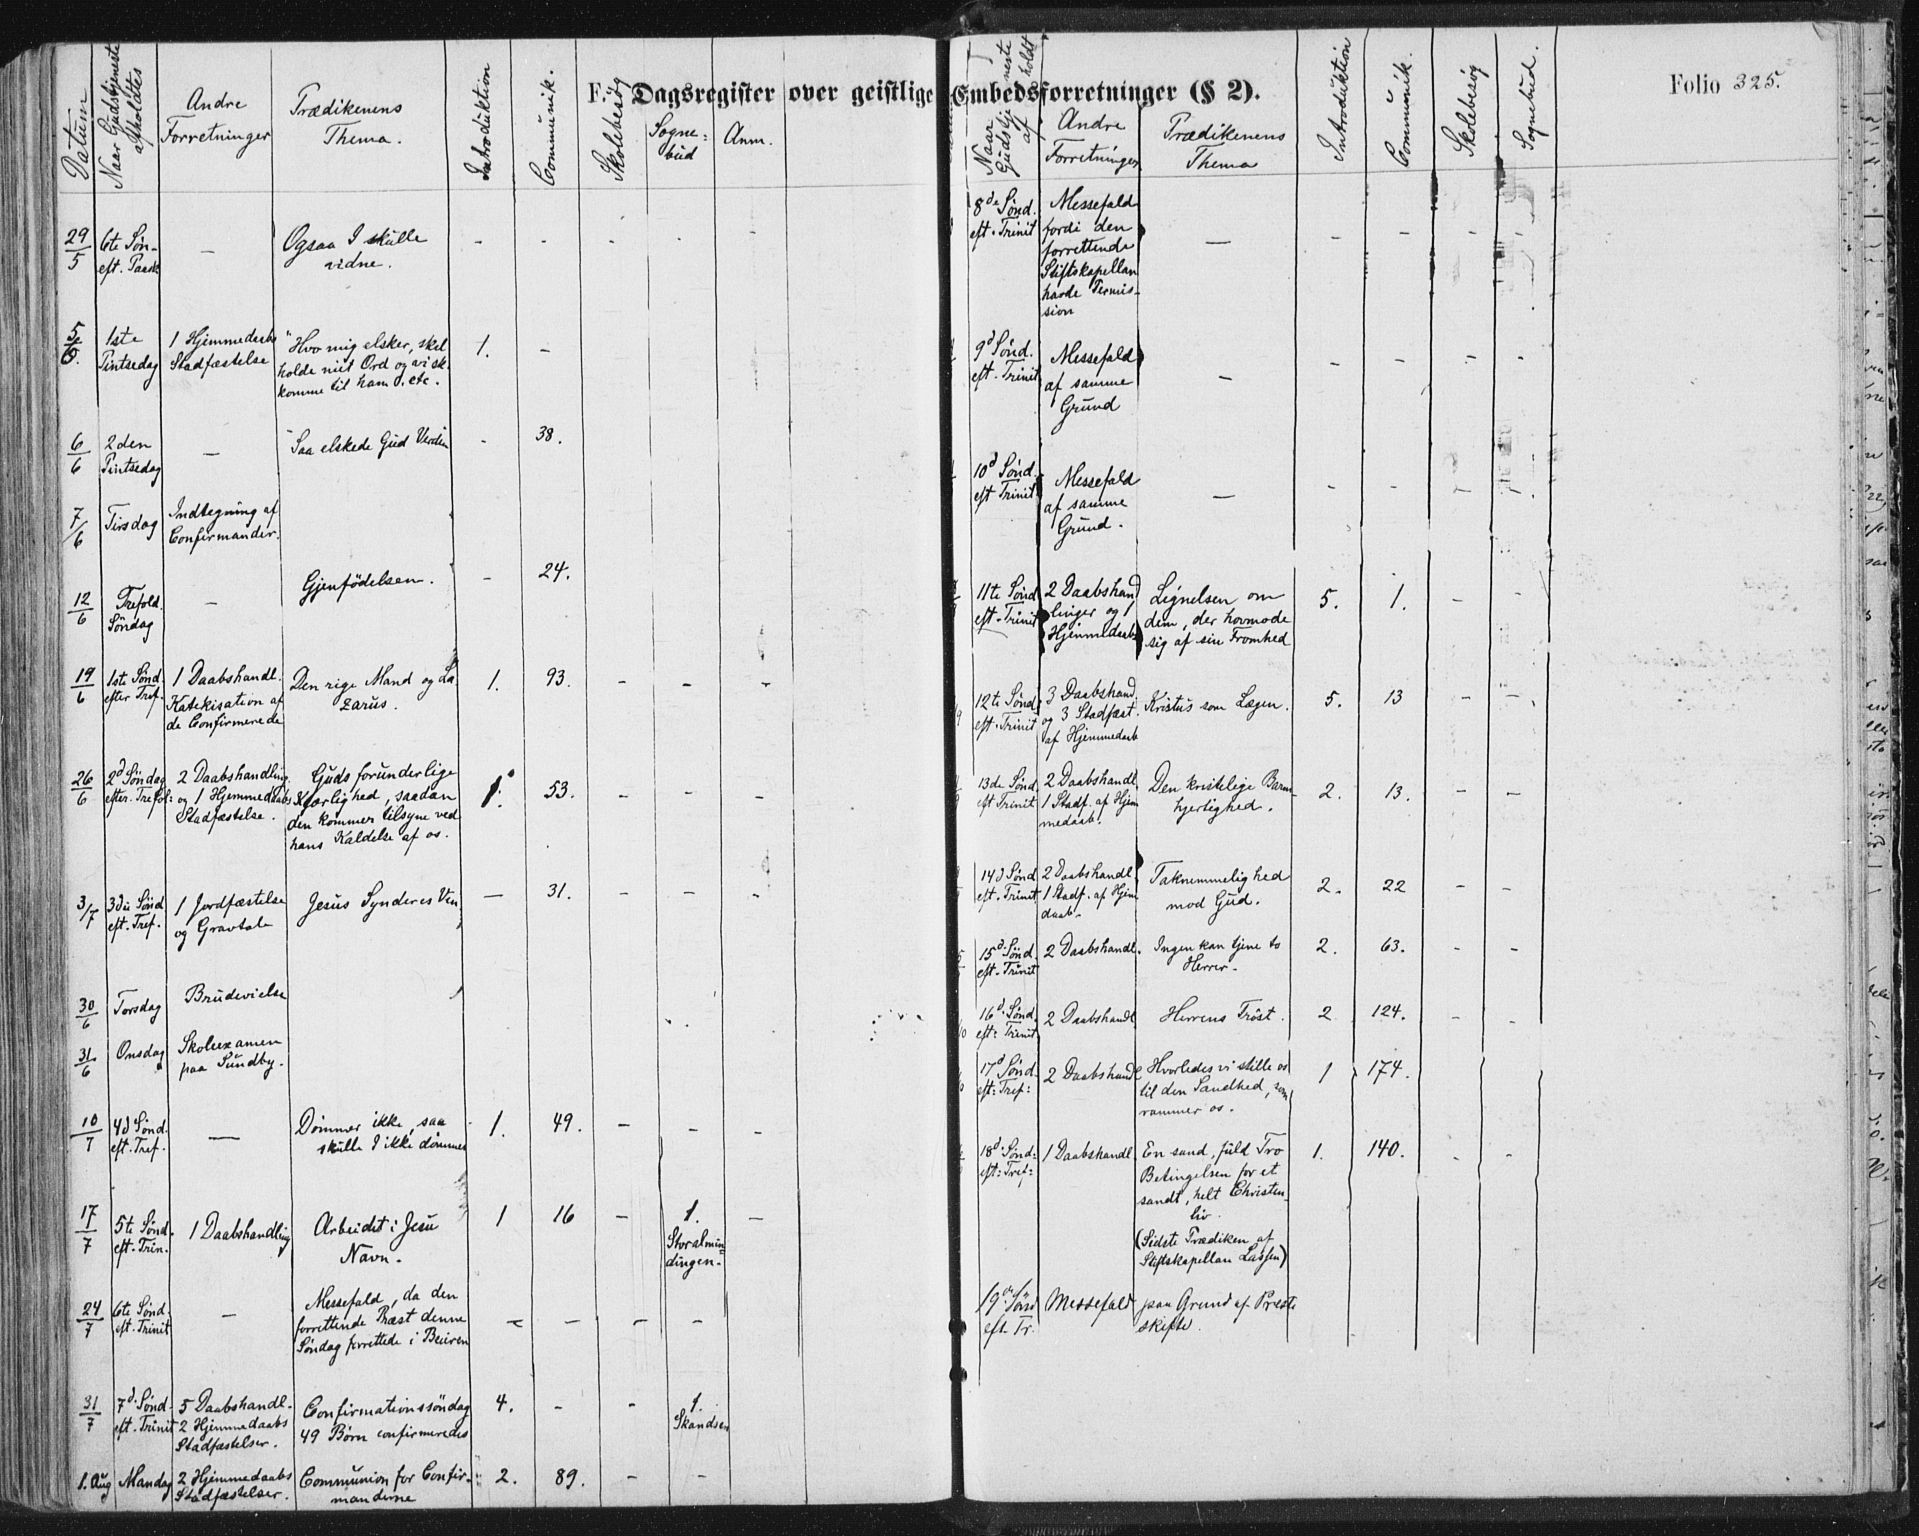 F. Dagsregister over geistlige Embedsforretninger (§ 2).
Folio 325.
Datum
Naar Gudstjeneste afholdtes
Andre
Forretninger
Prædikenens
Thema.
Introduktion
Communik.
Skolebesøg
Sogne-
bud
Anm.
29/5
6te Søn-
eft. Paaske
—
Ogsaa I skulle
vidne.
- - - - -
5/6.
1ste
Pintsedag
1 Hjemmedaabs
Stadfæstelse
"Hvo mig elsker, skal
holde mit Ord og vi sk.
komme til ham. etc.
1.
-
6/6
2den
Pintsedag
—
"Saa elskede Gud Verden
-
38.
7/6
Tirsdag
Indtegning af
Confirmander.
12/6
Trefold.
Søndag
-
Gjenfödelsen.
-
24.
19/6
1ste Sønd.
efter Tref.
1 Daabshandl.
Katekisation af
de Confirmerede
Den rige Mand og La-
zarus.
1.
93.
- - -
26/6
2d Søndag
efter Trefol:
2 Daabshandling.
og 1 Hjemmedaabs
Stadfæstelse.
Guds forunderlige
Kjærlighed, saadan
den kommer tilsyne ved
hans Kaldelse af os.
1.
53.
- - -
3/7
3die Sønd
eft. Tref.
1 Jordfæstelse
og Gravtale
Jesus Synderes Ven
—
31.
- - -
30/6
Torsdag
Brudevielse
31/6
Onsdag
Skoleexamen
paa Sundby.
10/7
4d Sønd.
eft. Tref.
—
Dömmer ikke, saa
skulle I ikke dömmes
1.
49.
- - -
17/7
5te Sønd.
eft. Trin.
1 Daabshandling
Arbeidet i Jesu
Navn.
1
16
-
1.
Storalmin-
dingen.
-
24/7
6te Sønd.
eft. Trinit
—
Messefald, da den
forrettende Præst denne
Söndag forrettede i Beiren
- - - -
31/7
7d. Sønd.
eft. Trinit
5 Daabshandl.
2 Hjemmedaabs
Stadfæstelser.
Confirmationssöndag
49 Børn confirmeredes
4.
- -
1.
Skandsen
1. Aug
Mandag
2 Hjemmedaabs
Stadfæstelser.
Communion for Confir-
manderne
2.
89.
- -
Naar Gudstjeneste afholdt
Andre
Forretninger
Prædikenens
Thema
Introduktion
Communik.
Skolebesøg
Sognebud.
8de Sønd.
eft. Trinit
Messefald
fordi den
forrettende
Stiftskapellan
havde Permis-
sion
—
- - - -
9d Sønd.
eft. Trinit
Messefald
af samme
Grund
—
- - - -
10d Sønd.
eft Trinit
Messefald
af samme
Grund.
—
- - - -
11te Sønd
eft. Trinit
2 Daabshand
linger og 1
Hjemmedaabs
Lignelsen om
dem, der hovmode
sig af sin Fromhed
5.
1.
- -
12te Sønd.
eft. Trinit
3 Daabshand.
og 3 Stadfæst.
af Hjemmedaab
Kristus som Lægen.
5.
13
- -
13de Sønd.
eft Trinit
2 Daabshandl.
1 Stadf. af Hjem
medaab.
Den kristelige Barm-
hjertighed.
2.
13.
- -
14d Sønd
eft. Trinit
2 Daabshandl.
1 Stadf. af Hjem
daab.
Taknemmelighed
mod Gud.
2.
22
- -
15d. Sønd.
eft. Trinit
2 Daabshandl.
Ingen kan tjene to
Herrer.
2.
63.
- -
16d. Sønd.
eft: Trinit
2 Daabshandl
Herrens Tröst.
2
124.
- -
17d Sønd.
eft: Tref:
2 Daabshandl
Hvorledes vi stille os
til den Sandhed, som
rammer os.
1
174.
18d. Sønd:
eft: Tref:
1 Daabshandl
En sand, fuld Tro
Betingelsen for et
sandt, helt Christen-
liv.
(Sidste Prædiken af
Stiftskapellan Lassen)
1.
140.
- -
19de Sønd
eft Tr.
Messefald
paa Grund af Præste
skifte.